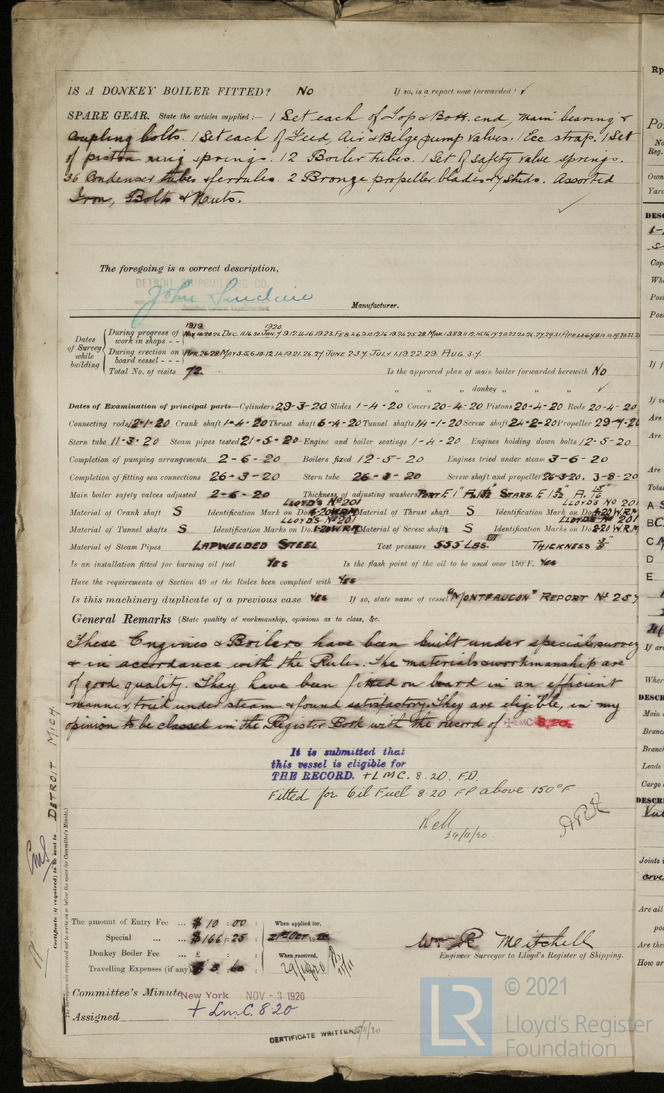 IS A DONKEY BOILER FITTED? No If so, is a report now forwarded? ✓
SPARE GEAR. State the articles supplied:— 1 Set each of Top & Bott. end, main bearing &
coupling bolts. 1 Set each of Feed, Air & Bilge pump valves. 1 Ecc strap. 1 Set
of piston ring springs. 12 Boiler tubes. 1 Set of safety valve springs.
36 Condenser tubes & ferrules. 2 Bronze propeller blades & studs. Assorted
Iron, Bolts & Nuts.
The foregoing is a correct description,
DETROIT SHIPBUILDING CO.
John
Manufacturer.
Dates of Survey while building
1919 1920
During progress of work in shops - -
During erection on board vessel - - - MAY 3.5.6.10.12.14.19.21.26.27 JUNE 2.3.4. JULY 1.19.22.29. AUG 3.4.
Total No. of visits 72. Is the approved plan of main boiler forwarded herewith No
" " " donkey " " " ✓
Dates of Examination of principal parts—Cylinders 29-3-20 Slides 1-4-20 Covers 20-4-20 Pistons 20-4-20 Rods 20-4-20
Connecting rods 2-1-20 Crank shaft 1-4-20 Thrust shaft 6-4-20 Tunnel shafts 14-1-20 Screw shaft 24-2-20 Propeller 29-7-20
Stern tube 11-3-20 Steam pipes tested 21-5-20 Engine and boiler seatings 1-4-20 Engines holding down bolts 12-5-20
Completion of pumping arrangements 2-6-20 Boilers fixed 12-5-20 Engines tried under steam 3-6-20
Completion of fitting sea connections 26-3-20 Stern tube 26-3-20 Screw shaft and propeller 26-3-20. 3-8-20
Main boiler safety valves adjusted 2-6-20 Thickness of adjusting washers PORT. E 1" STARB. E
Material of Crank shaft S Identification Mark on Do. LLOYD'S No 201 W.R.M. Material of Thrust shaft S Identification Mark on Do. LLOYDS No 201 W.R.M.
Material of Tunnel shafts S Identification Marks on Do. LLOYD'S No 201 W.R.M. Material of Screw shafts S Identification Marks on Do. LLOYDS No 201 W.R.M.
Material of Steam Pipes LAPWELDED STEEL Test pressure 555 LBS. THICKNESS
Is an installation fitted for burning oil fuel YES Is the flash point of the oil to be used over 150°F. Yes
Have the requirements of Section 49 of the Rules been complied with YES
Is this machinery duplicate of a previous case YES If so, state name of vessel "MONTFAUCON" REPORT No 257
General Remarks (State quality of workmanship, opinions as to class, &c.
These Engines & Boilers have been built under special survey
& in accordance with the Rules. The materials & workmanship are
of good quality. They have been fitted on board in an efficient
manner, tried under steam & found satisfactory. They are eligible, in my
opinion to be classed in the Register Book with the record of + LMC 8.20.
It is submitted that
this vessel is eligible for
THE RECORD. + LMC. 8.20. F.D.
Fitted for Oil Fuel 8.20 FP above 150°F
24/11/20
DETROIT MICH.
Certificate (if required) to be sent to
The amount of Entry Fee ... $ 10 : 00 When applied for,
Special ... $ 166 : 25
Donkey Boiler Fee ... £ When received,
Travelling Expenses (if any)
Wm R Mitchell
Engineer Surveyor to Lloyd's Register of Shipping.
Committee's Minute New York NOV - 3 1920
Assigned + LMC. 8 20
CERTIFICATE WRITTEN
LR
© 2021
Lloyd's Register
Foundation